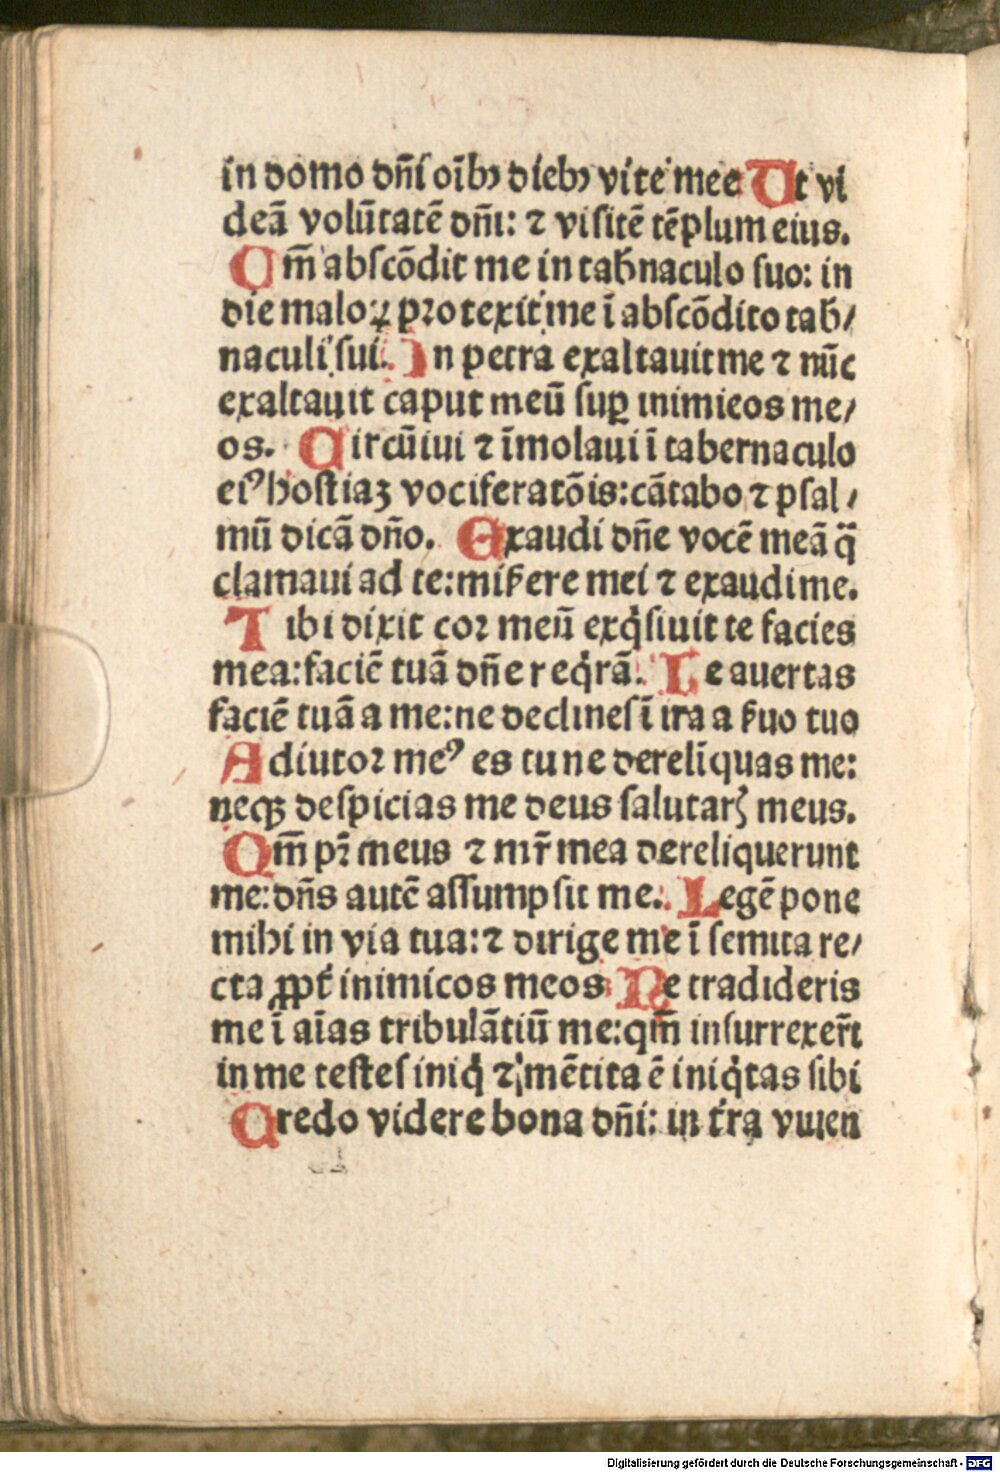 in domo dñi oib₉ dieb₉ vite mee Ut vi
deã volũtatẽ dñi: ⁊ visitẽ tẽplum eius.
Qm̃ abscõdit me in tab̃naculo suo: in
die maloꝝ protexit me ĩ abscõdito tab̃/
naculi sui. In petra exaltauit me ⁊ nũc
exaltauit caput meũ suꝑ inimicos me/
os. Circũiui ⁊ ĩmolaui ĩ tabernaculo
eiꝰ hostiaʒ vociferatõis: cãtabo ⁊ psal/
mũ dicã dño. Exaudi dñe vocẽ meã q̃
clamaui ad te: miẜere mei ⁊ exaudi me.
Tibi dixit cor meũ exq̇siuit te facies
mea: faciẽ tuã dñe req̇rã. Ne auertas
faciẽ tuã a me: ne declines ĩ ira a ẜuo tuo
Adiutor meꝰ es tu ne derelĩquas me:
neqꝫ despicias me deus salutarꝭ meus.
Qm̃ pr̃ meus ⁊ mr̃ mea dereliquerunt
me: dñs autẽ assumpsit me. Legẽ pone
mihi in via tua: ⁊ dirige me ĩ semita re/
cta ꝓpt̃ inimicos meos Ne tradideris
me ĩ aĩas tribulãtiũ me: qm̃ insurrexer̃t
in me testes iniq̇ ⁊ mẽtita ẽ iniq̇tas sibi
Credo videre bona dñi: in t̃ra viuen
Digitalisierung gefördert durch die Deutsche Forschungsgemeinschaft - DFG